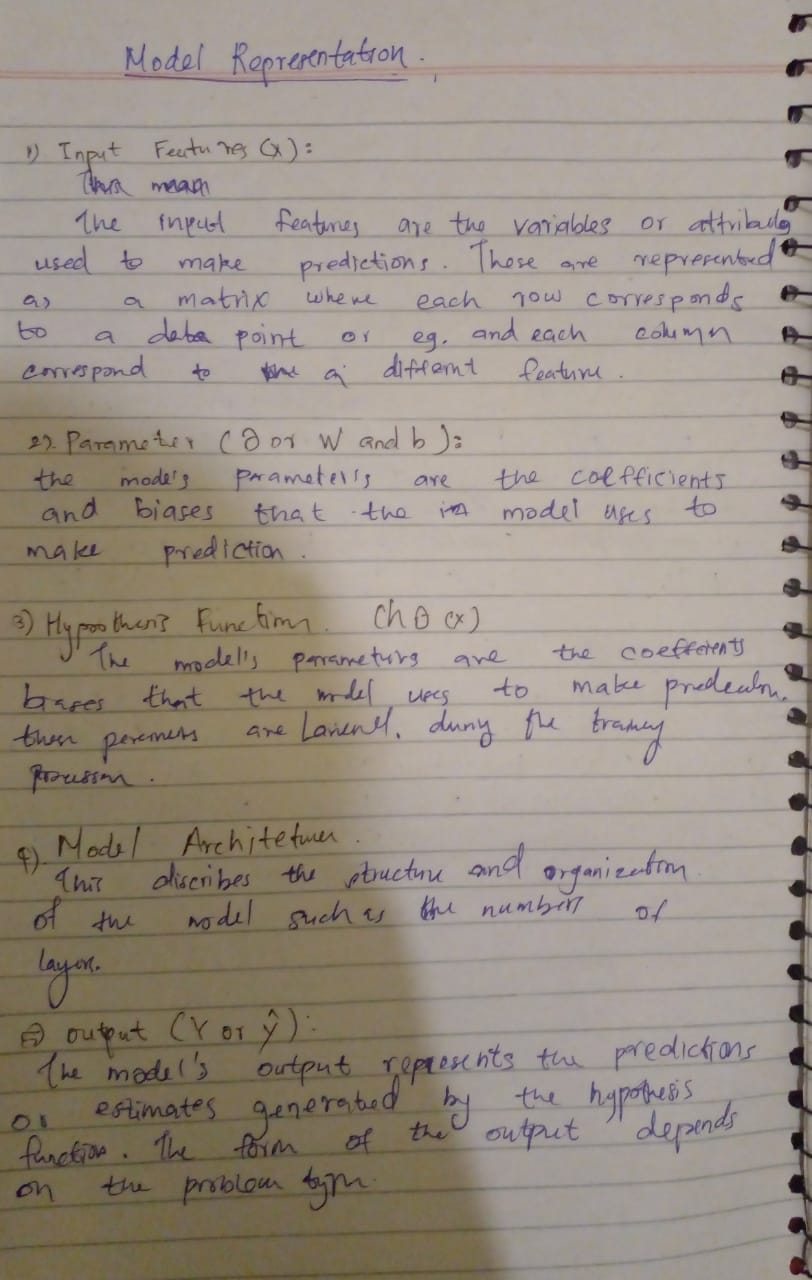 Model Representation.
1) Input Features (x):
The input features are the variables or attributes
used to make predictions. These are represented
as a matrix where each row corresponds
to a data point or eg. and each column
correspond to a different feature.
2). Parameter (∂ or W and b):
the model's parameters are the coefficients
and biases that the model uses to
make prediction.
3) Hypothesis Function. (hθ(x)
The model's parameters are the coefficients
biases that the model uses to make
are during the
4). Model
This discribes the structure and organization
of the model such as the numbers of
layers.
5) output (Y or ŷ):
The model's output represents the predictions
or estimates generated by the hypothesis
function. The form of the output depends
on the problem type.